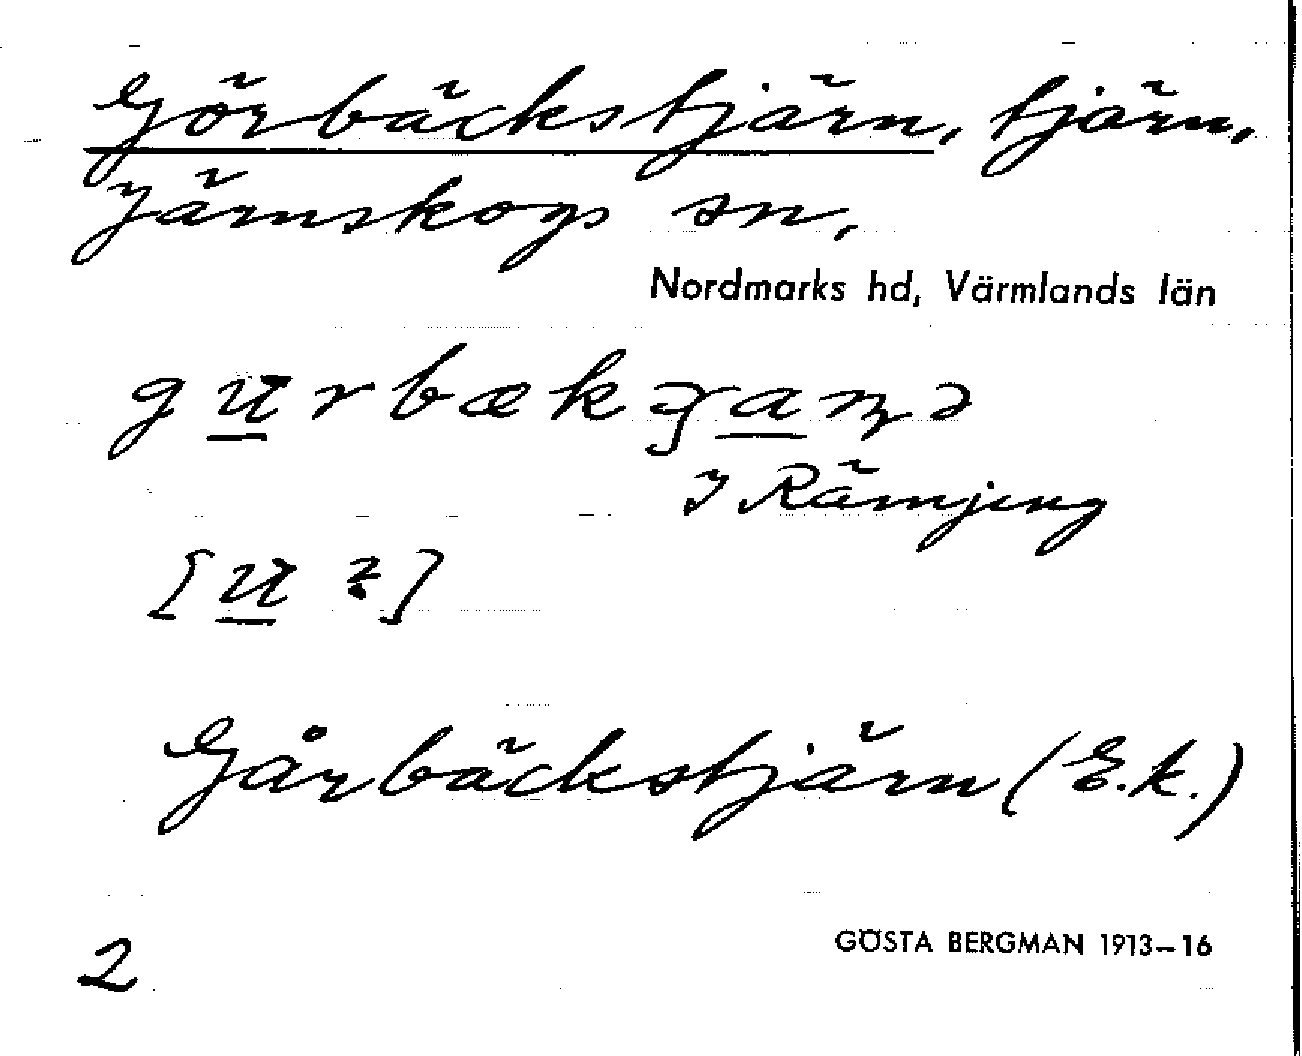 Görbäckstjärn, tjärn,
Järnskogs sn,
Nordmarks hd, Värmlands län
I Rämjeng
Gårbäckstjärn (E.k.)
2
GÖSTA BERGMAN 1913–16